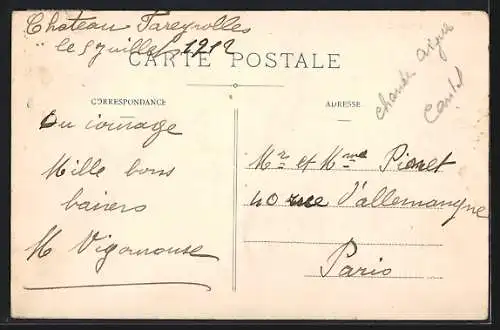 Chateau Fareyrolles
le 5 Juillet 1912
CARTE POSTALE
CORRESPONDANCE
ADRESSE
Chaude Aigue
Cantal
Du courage
Mille bons
baisers
M Vigourouse
Mr et Mme Pionet
40 rue d'allemangne
Paris